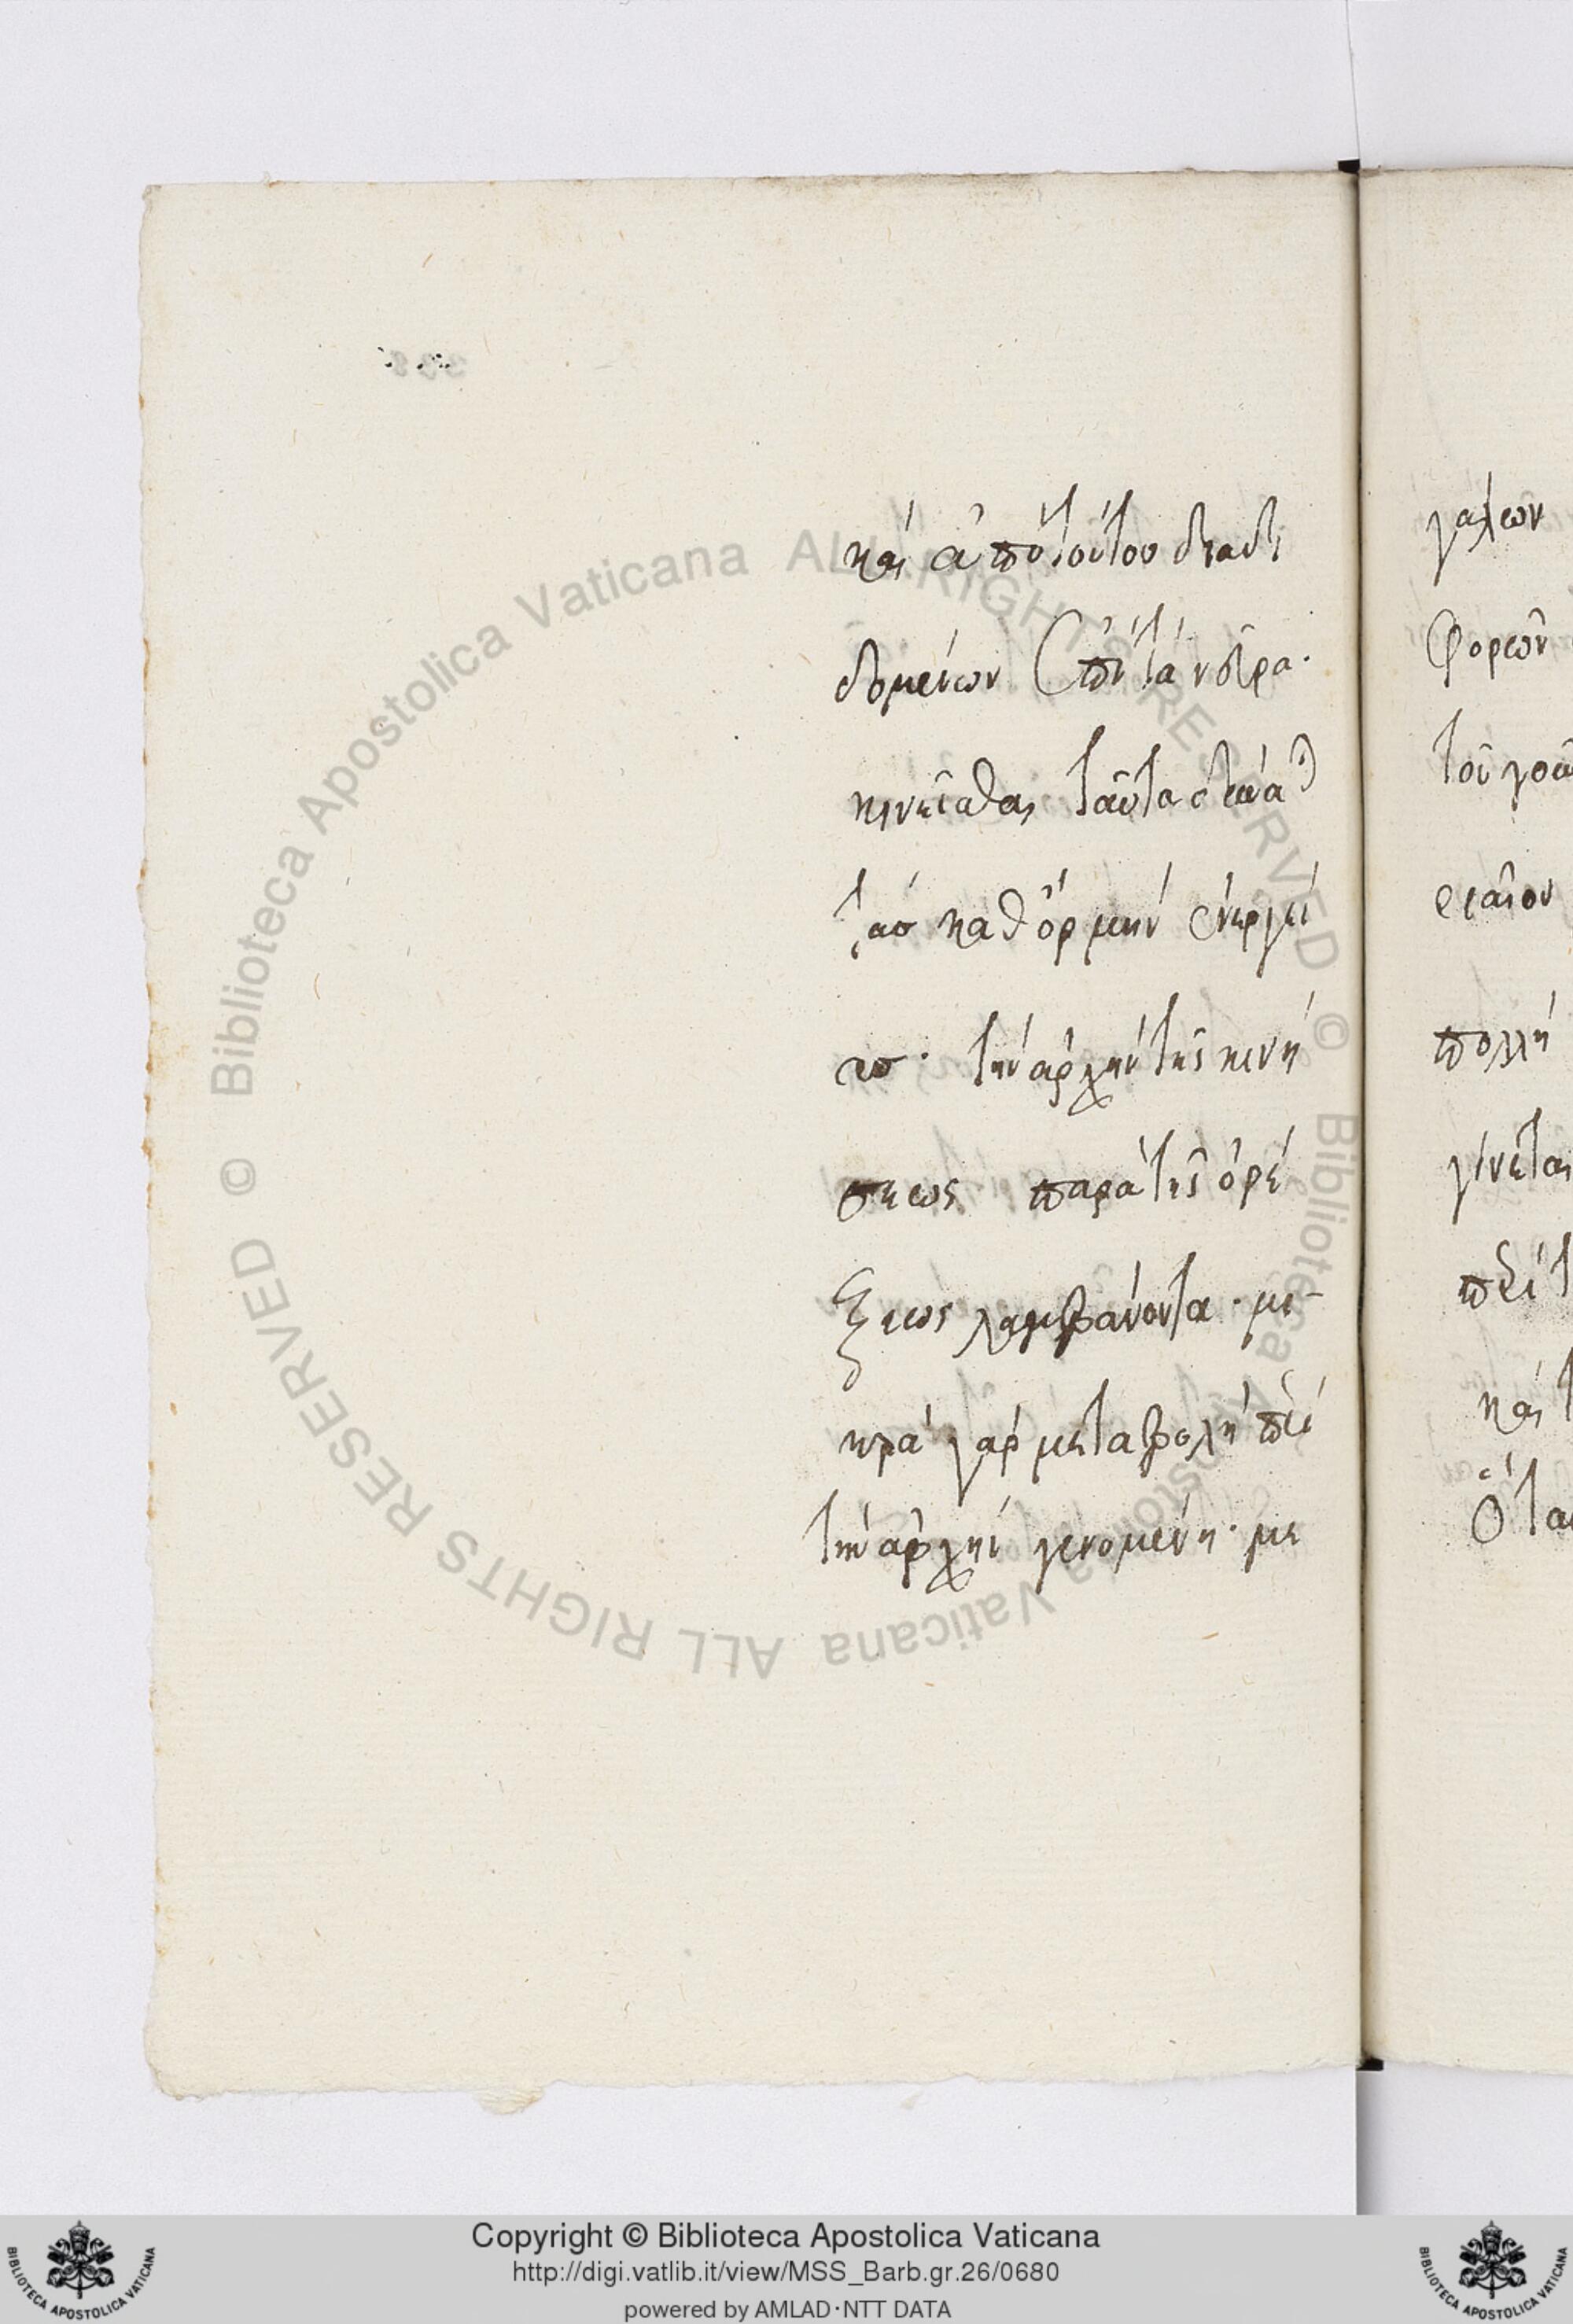 καὶ ἀπὸ τούτου διαδι
δομένων ἐπὶ τὰ νεῦρα·
κινεῖσθαι ταῦτα
τὰσ καθ ὁρμὴν ἐνεργεί
ασ· τὴν ἀρχὴν τῆς κινή
σεως παρὰ τῆς ὀρέ
ξεως λαμβάνοντα· μι-
κρὰ γὰρ μεταβολὴ περὶ
τὴν ἀρχὴν γενομένη· με
γαλων
φορῶν
τοῦ γοῦ
πολλὴ
γίνεται
καὶ τ
ὅτα
Biblioteca Apostolica Vaticana ALL RIGHTS RESERVED ©
Biblioteca Apostolica Vaticana ALL RIGHTS RESERVED ©
Copyright © Biblioteca Apostolica Vaticana
http://digi.vatlib.it/view/MSS_Barb.gr.26/0680
powered by AMLAD·NTT DATA
BIBLIOTECA APOSTOLICA VATICANA
BIBLIOTECA APOSTOLICA VATICANA